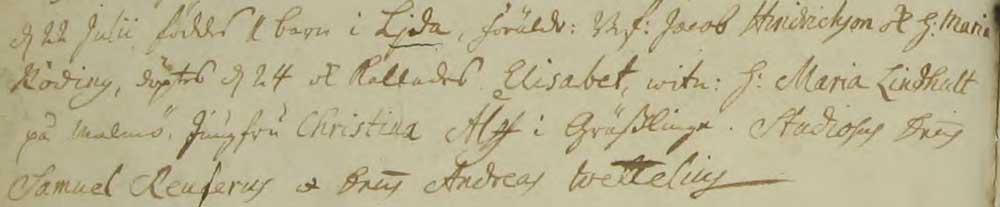 d 22 Julii föddes 1 barn i Ljda, föräldr: R. f: Jacob Hindrichson & H: Maria
Röding, döptes d 24 & Kallades Elisabet, witn: H: Maria Lindhult
på Malmö, Jungfru Christina Alff i Gräßlinge. Studiosus Dns
Samuel Reuserus & Dns Andreas Wettelius